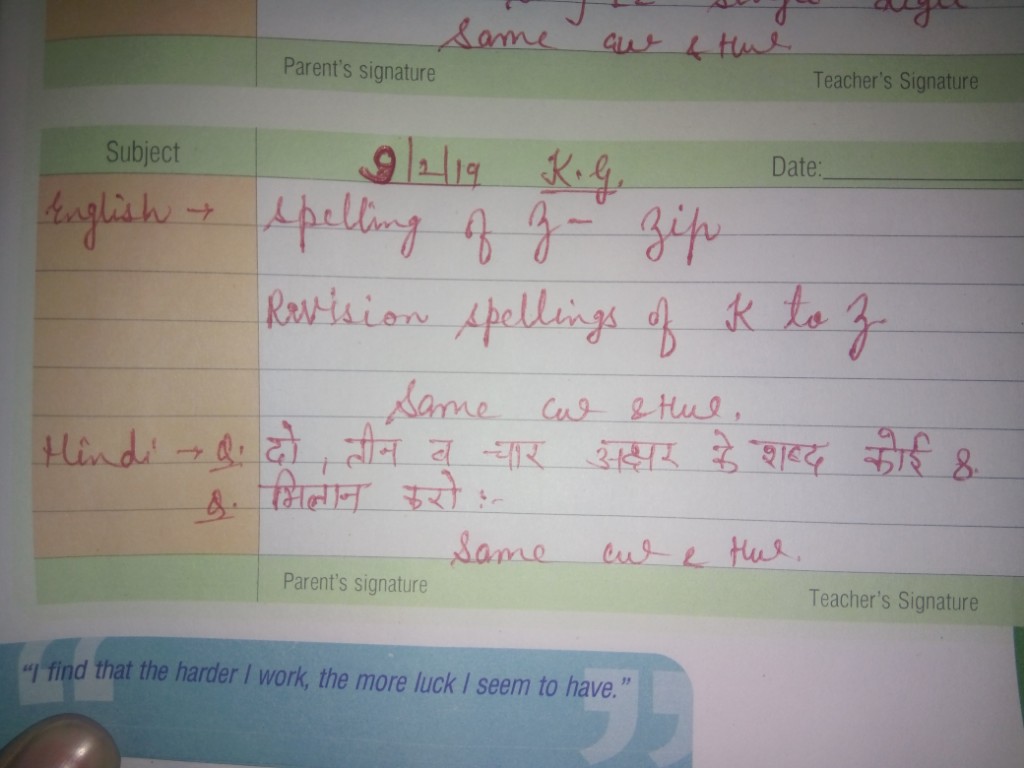 single
Same cw & Hw
Parent's signature Teacher's Signature
Subject 9/2/19 K.G. Date:
English → Spelling of Z - Zip
Revision spellings of K to Z
Same cw & Hw.
Hindi → Q. दो, तीन व चार अक्षर के शब्द कोई 8.
Q. मिलान करो :-
Same cw & Hw.
Parent's signature Teacher's Signature
"I find that the harder I work, the more luck I seem to have."